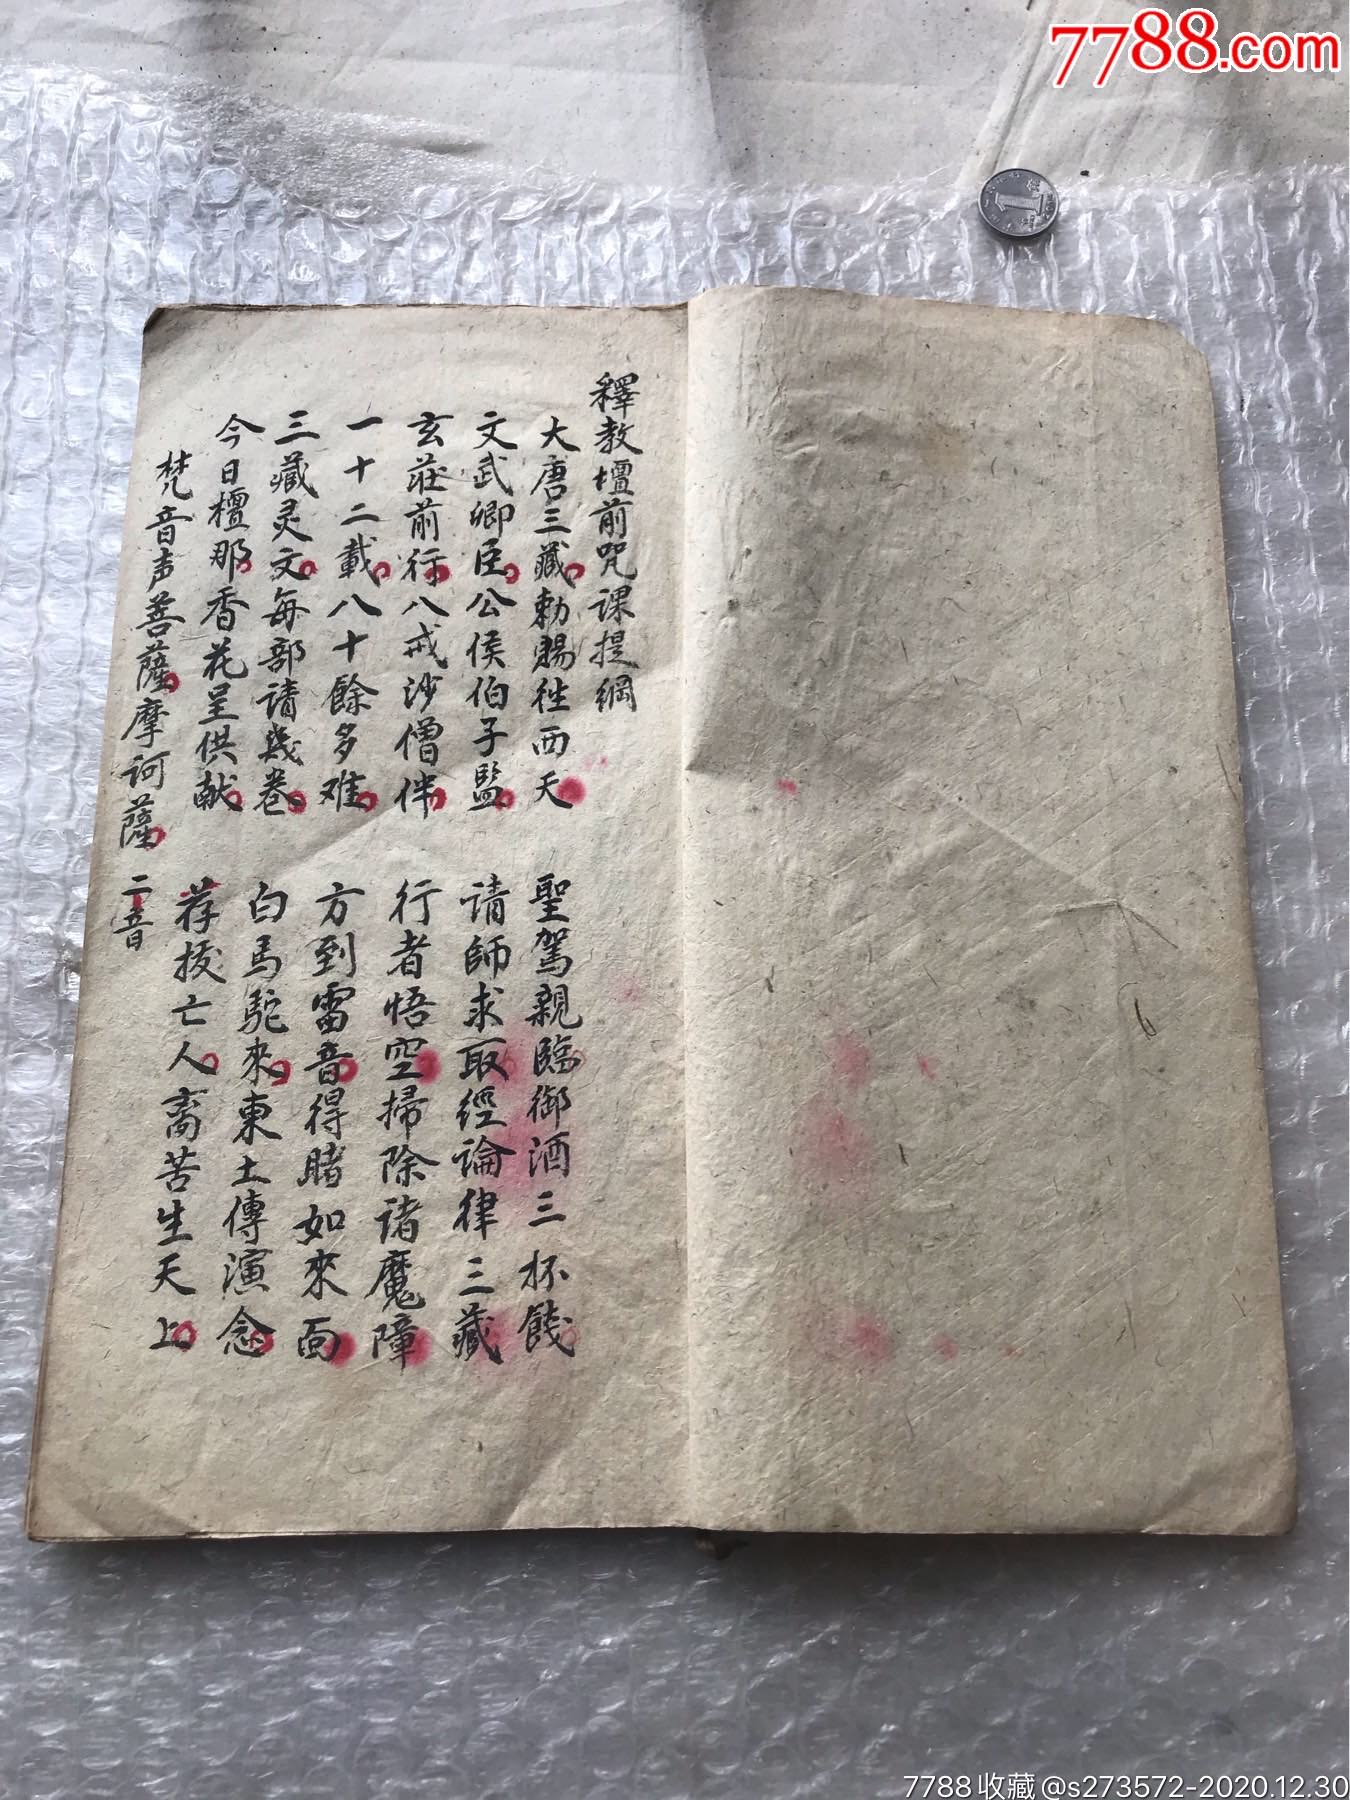 7788.com
釋教壇前咒课提綱
大唐三藏勅賜往西天 聖駕親臨御酒三杯餞
文武卿臣公侯伯子監 请師求取經論律三藏
玄莊前行八戒沙僧伴 行者悟空掃除诸魔障
一十二載八十餘多难 方到雷音得睹如來面
三藏灵文每部请幾卷 白馬駝來東土傳演念
今日檀那香花呈供献 荐拔亡人离苦生天上
梵音声菩薩摩诃薩 二音
7788收藏@s273572-2020.12.30